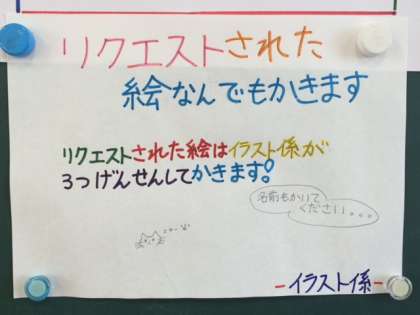 リクエストされた
絵なんでもかきます
リクエストされた絵はイラスト係が
3つげんせんしてかきます!
名前もかいて
ください。。。
-イラスト係-